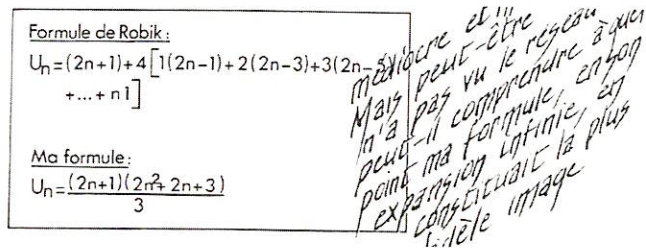 Formule de Robik :
Uₙ=(2n+1)+4[1(2n−1)+2(2n−3)+3(2n−5)
+...+n1]
Ma formule :
Uₙ=(2n+1)(2n²+2n+3)
3
médiocre et
Mais peut-être
n'a pas vu le réseau
peut-il comprendre à quel
point ma formule, en son
expansion infinie, en
constituait la plus
fidèle image